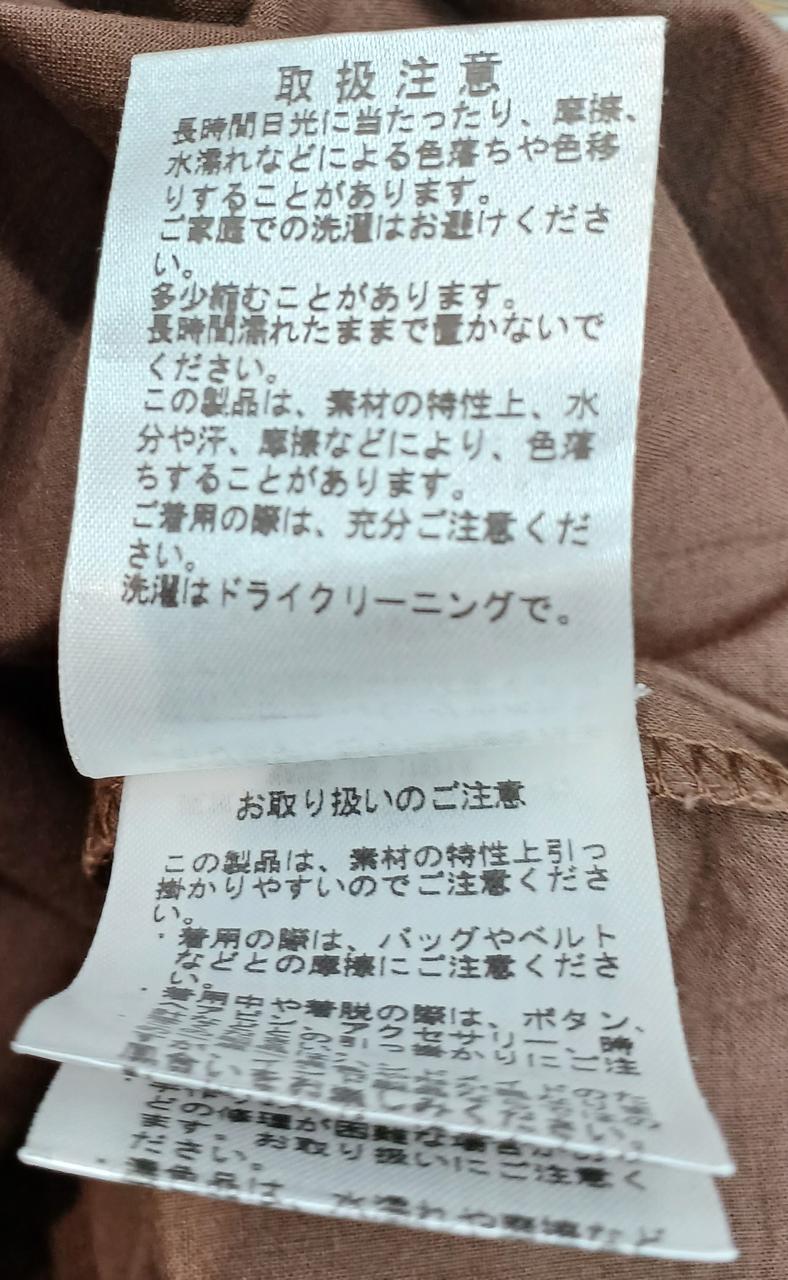 取扱注意
長時間日光に当たったり、摩擦、
水濡れなどによる色落ちや色移
りすることがあります。
ご家庭での洗濯はお避けくださ
い。
多少縮むことがあります。
長時間濡れたままで置かないで
ください。
この製品は、素材の特性上、水
分や汗、摩擦などにより、色落
ちすることがあります。
ご着用の際は、充分ご注意くだ
さい。
洗濯はドライクリーニングで。
お取り扱いのご注意
この製品は、素材の特性上引っ
掛かりやすいのでご注意くださ
い。
・着用の際は、バッグやベルト
などとの摩擦にご注意くださ
い。
・着用中や着脱の際は、ボタン、
アクセサリー、時
引っ掛かりにご注
風合いをお楽しみください。
どの修理が困難な場合があり
ます。お取り扱いにご注意く
ださい。
・濃色品は、水濡れや摩擦など